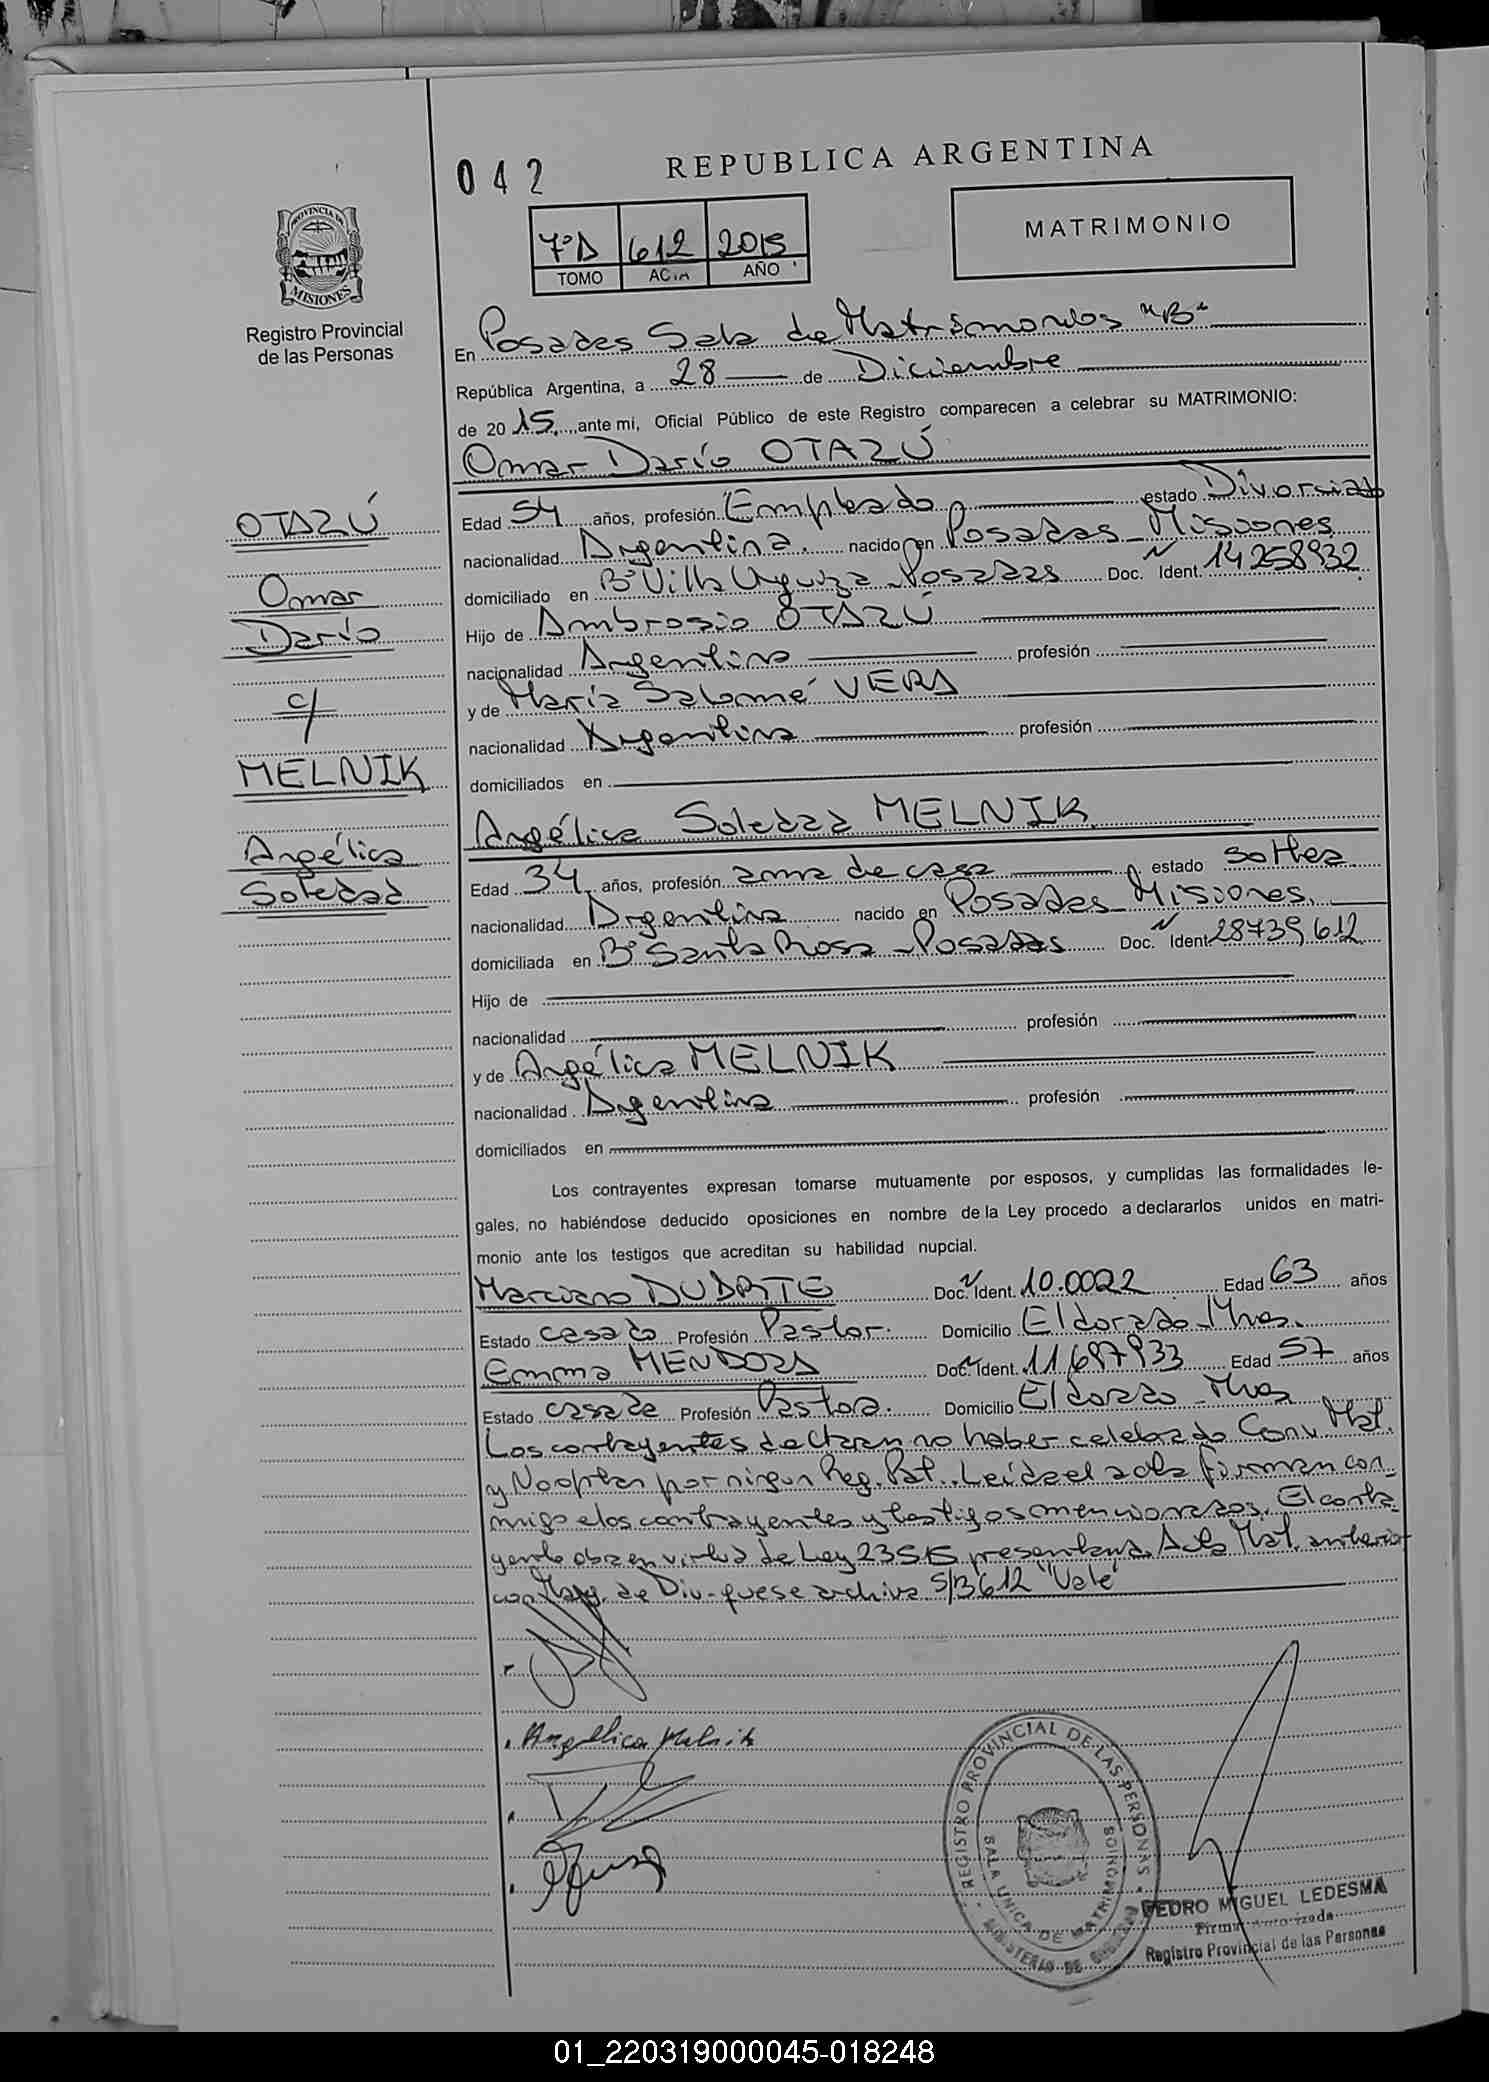 042
REPUBLICA ARGENTINA
7°D 612 2015
TOMO ACTA AÑO
MATRIMONIO
PROVINCIA DE
MISIONES
Registro Provincial
de las Personas
En Posadas Sala de Matrimonios "B"
República Argentina, a 28 de Diciembre
de 2015, ante mi, Oficial Público de este Registro comparecen a celebrar su MATRIMONIO:
Omar Darío OTAZÚ
OTAZÚ
Omar
Darío
c/
MELNIK
Angélica
Soledad
Edad 54 años, profesión Empleado estado Divorciado
nacionalidad Argentina. nacido en Posadas Misiones
domiciliado en B° Villa Urquiza Posadas Doc. Ident. N 14258932
Hijo de Ambrosio OTAZÚ
nacionalidad Argentina profesión
y de María Salomé VERA
nacionalidad Argentina profesión
domiciliados en
Angélica Soledad MELNIK
Edad 34 años, profesión ama de casa estado soltera
nacionalidad Argentina nacido en Posadas Misiones.
domiciliada en B° Santa Rosa Posadas Doc. Ident N 28739612
Hijo de
nacionalidad profesión
y de Angélica MELNIK
nacionalidad Argentina profesión
domiciliados en
Los contrayentes expresan tomarse mutuamente por esposos, y cumplidas las formalidades le-
gales, no habiéndose deducido oposiciones en nombre de la Ley procedo a declararlos unidos en matri-
monio ante los testigos que acreditan su habilidad nupcial.
Marciano DUARTE Doc. N Ident. 10.0022 Edad 63 años
Estado casado Profesión Pastor. Domicilio Eldorado Mnes.
Emma MENDOZA Doc. N Ident. 11697933 Edad 57 años
Estado casada Profesión Pastora. Domicilio Eldorado Mnes
Los contrayentes declaran no haber celebrado Conv. Mat.
y No optan por ningun Reg. Pat. Leída el acta firman con-
migo los contrayentes y testigos mencionados. El contra-
yente obra en virtud de Ley 23515 presentana Acta Mat. anterior
con Marg. de Div. que se archiva S/B 612 "Vale"
Angélica Melnik
REGISTRO PROVINCIAL DE LAS PERSONAS
SALA UNICA DE MATRIMONIOS
MINISTERIO DE GOBIERNO
PEDRO MIGUEL LEDESMA
Firma Autorizada
Registro Provincial de las Personas
01_220319000045-018248